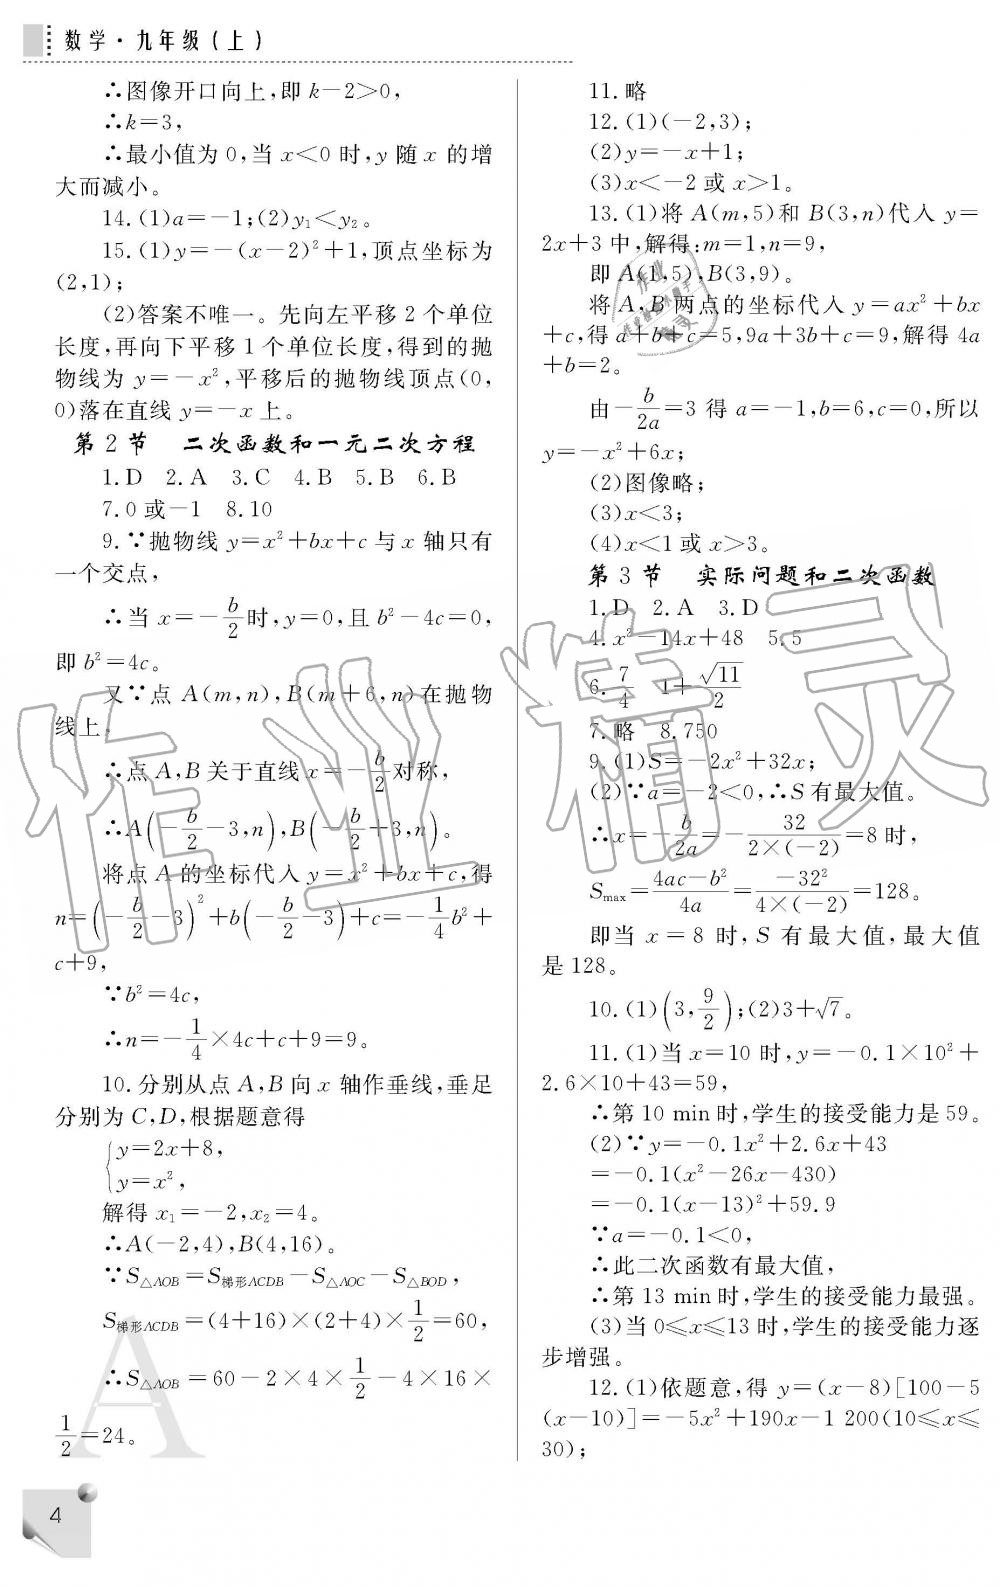 数学·九年级(上)
∴图像开口向上,即 k−2>0,
∴k=3,
∴最小值为 0,当 x<0 时,y 随 x 的增
大而减小。
14.(1)a=−1;(2)y₁<y₂。
15.(1)y=−(x−2)²+1,顶点坐标为
(2,1);
(2)答案不唯一。先向左平移 2 个单位
长度,再向下平移 1 个单位长度,得到的抛
物线为 y=−x²,平移后的抛物线顶点(0,
0)落在直线 y=−x 上。
第 2 节 二次函数和一元二次方程
1.D 2.A 3.C 4.B 5.B 6.B
7.0 或−1 8.10
9.∵抛物线 y=x²+bx+c 与 x 轴只有
一个交点,
∴当 x=−b/2时,y=0,且 b²−4c=0,
即 b²=4c。
又∵点 A(m,n),B(m+6,n)在抛物
线上,
∴点 A,B 关于直线 x=−b/2对称,
∴A(−b/2−3,n),B(−b/2+3,n)。
将点 A 的坐标代入 y=x²+bx+c,得
n=(−b/2−3)²+b(−b/2−3)+c=−1/4b²+
c+9,
∵b²=4c,
∴n=−1/4×4c+c+9=9。
10.分别从点 A,B 向 x 轴作垂线,垂足
分别为 C,D,根据题意得
{y=2x+8,
y=x²,
解得 x₁=−2,x₂=4。
∴A(−2,4),B(4,16)。
∵S△AOB=S梯形ACDB−S△AOC−S△BOD,
S梯形ACDB=(4+16)×(2+4)×1/2=60,
∴S△AOB=60−2×4×1/2−4×16×
1/2=24。
11.略
12.(1)(−2,3);
(2)y=−x+1;
(3)x<−2 或 x>1。
13.(1)将 A(m,5)和 B(3,n)代入 y=
2x+3 中,解得:m=1,n=9,
即 A(1,5),B(3,9)。
将 A,B 两点的坐标代入 y=ax²+bx
+c,得 a+b+c=5,9a+3b+c=9,解得 4a
+b=2。
由−b/2a=3 得 a=−1,b=6,c=0,所以
y=−x²+6x;
(2)图像略;
(3)x<3;
(4)x<1 或 x>3。
第 3 节 实际问题和二次函数
1.D 2.A 3.D
4.x²−14x+48 5.5
6.7/4 1+√11/2
7.略 8.750
9.(1)S=−2x²+32x;
(2)∵a=−2<0,∴S 有最大值。
∴x=−b/2a=−32/2×(−2)=8 时,
Smax=4ac−b²/4a=−32²/4×(−2)=128。
即当 x=8 时,S 有最大值,最大值
是 128。
10.(1)(3,9/2);(2)3+√7。
11.(1)当 x=10 时,y=−0.1×10²+
2.6×10+43=59,
∴第 10 min 时,学生的接受能力是 59。
(2)∵y=−0.1x²+2.6x+43
=−0.1(x²−26x−430)
=−0.1(x−13)²+59.9
∵a=−0.1<0,
∴此二次函数有最大值,
∴第 13 min 时,学生的接受能力最强。
(3)当 0≤x≤13 时,学生的接受能力逐
步增强。
12.(1)依题意,得 y=(x−8)[100−5
(x−10)]=−5x²+190x−1 200(10≤x≤
30);
4
作业精灵